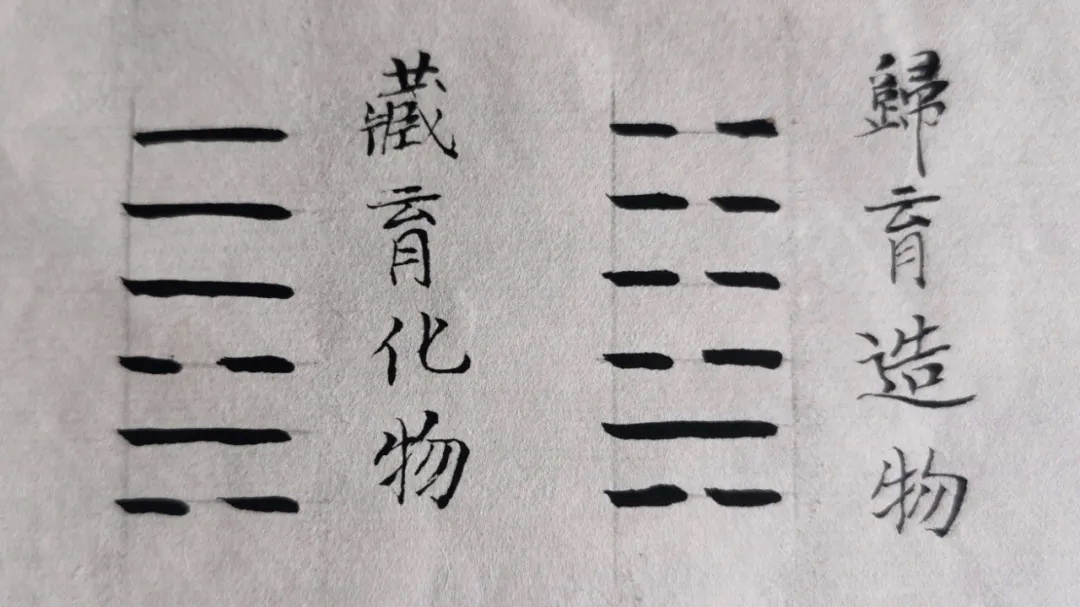 藏育化物
歸育造物